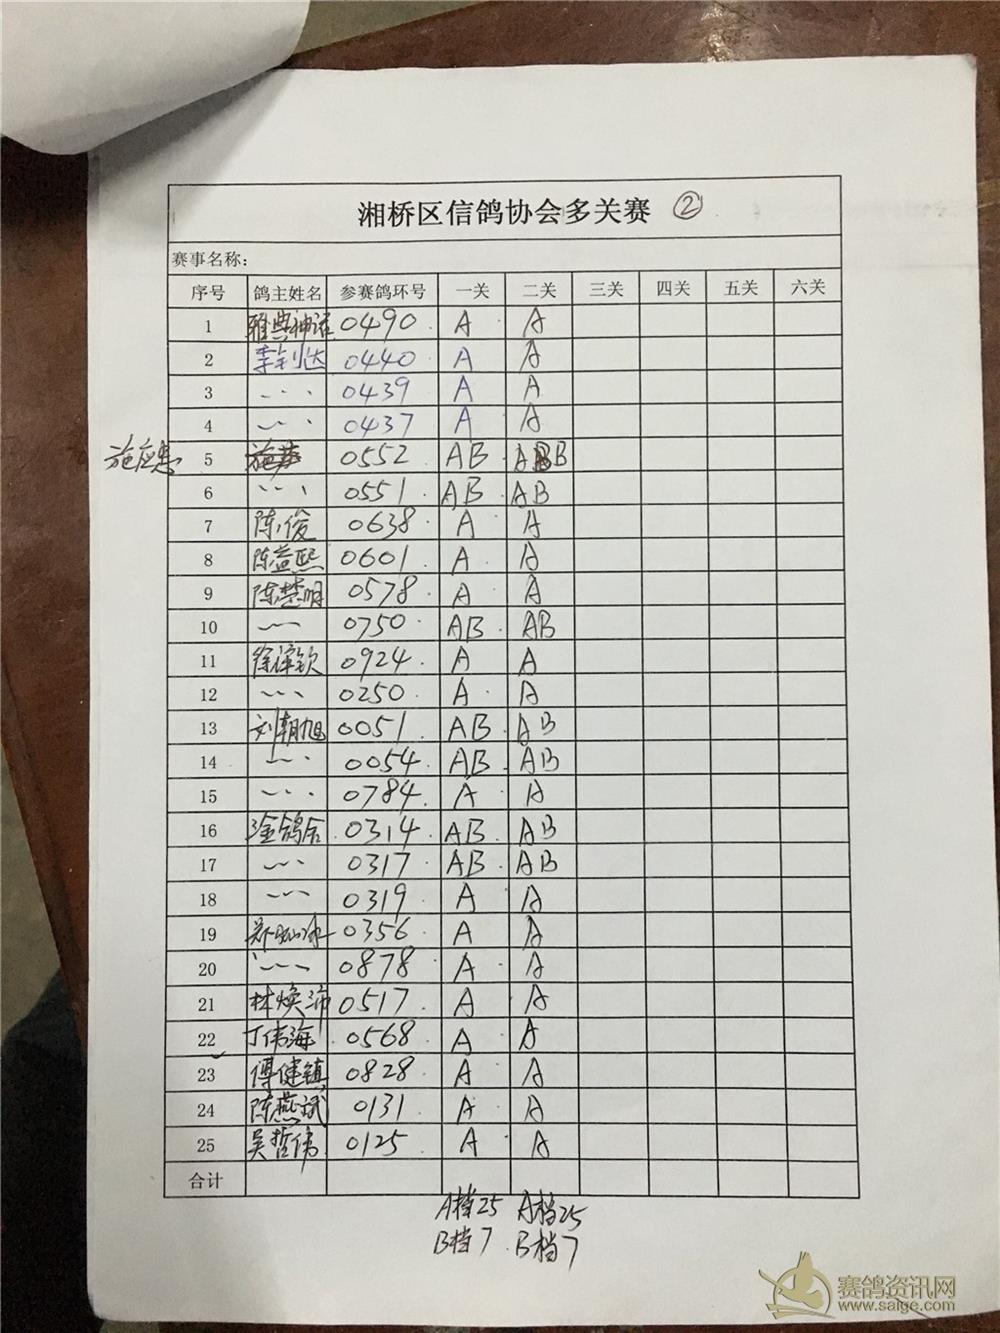 湘桥区信鸽协会多关赛 ②
赛事名称：
序号 鸽主姓名 参赛鸽环号 一关 二关 三关 四关 五关 六关
1 雅典神话 0490 A A
2 李钊达 0440 A A
3 、、、 0439 A A
4 、、、 0437 A A
施应忠 5 0552 AB ABB
6 、、、 0551 AB AB
7 陈俊 0638 A A
8 陈益熙 0601 A A
9 陈楚明 0578 A A
10 、、、 0750 AB AB
11 徐泽钦 0924 A A
12 、、、 0250 A A
13 刘朝旭 0051 AB AB
14 、、、 0054 AB AB
15 、、、 0784 A A
16 淦鸽舍 0314 AB AB
17 、、、 0317 AB AB
18 、、、 0319 A A
19 0356 A A
20 、、、 0878 A A
21 林焕沛 0517 A A
22 丁伟海 0568 A A
23 傅健镇 0828 A A
24 陈燕斌 0131 A A
25 吴哲伟 0125 A A
合计
A档25 A档25
B档7 B档7
赛鸽资讯网
www.saige.com